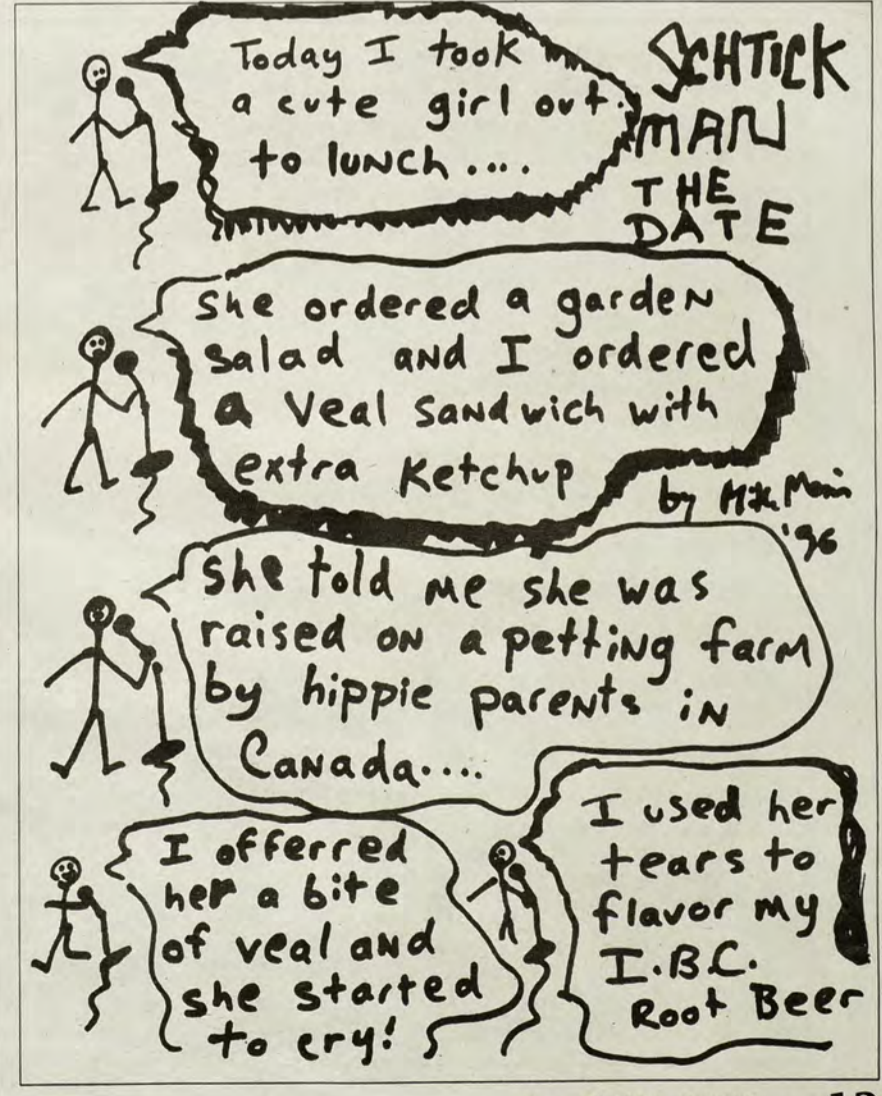 Today I took
a cute girl out
to lunch....
SCHTICK
MAN
THE
DATE
She ordered a garden
salad and I ordered
a veal sandwich with
extra Ketchup
by
'96
She told me she was
raised on a petting farm
by hippie parents in
Canada....
I offerred
her a bite
of veal and
she started
to cry!
I used her
tears to
flavor my
I.B.C.
Root Beer